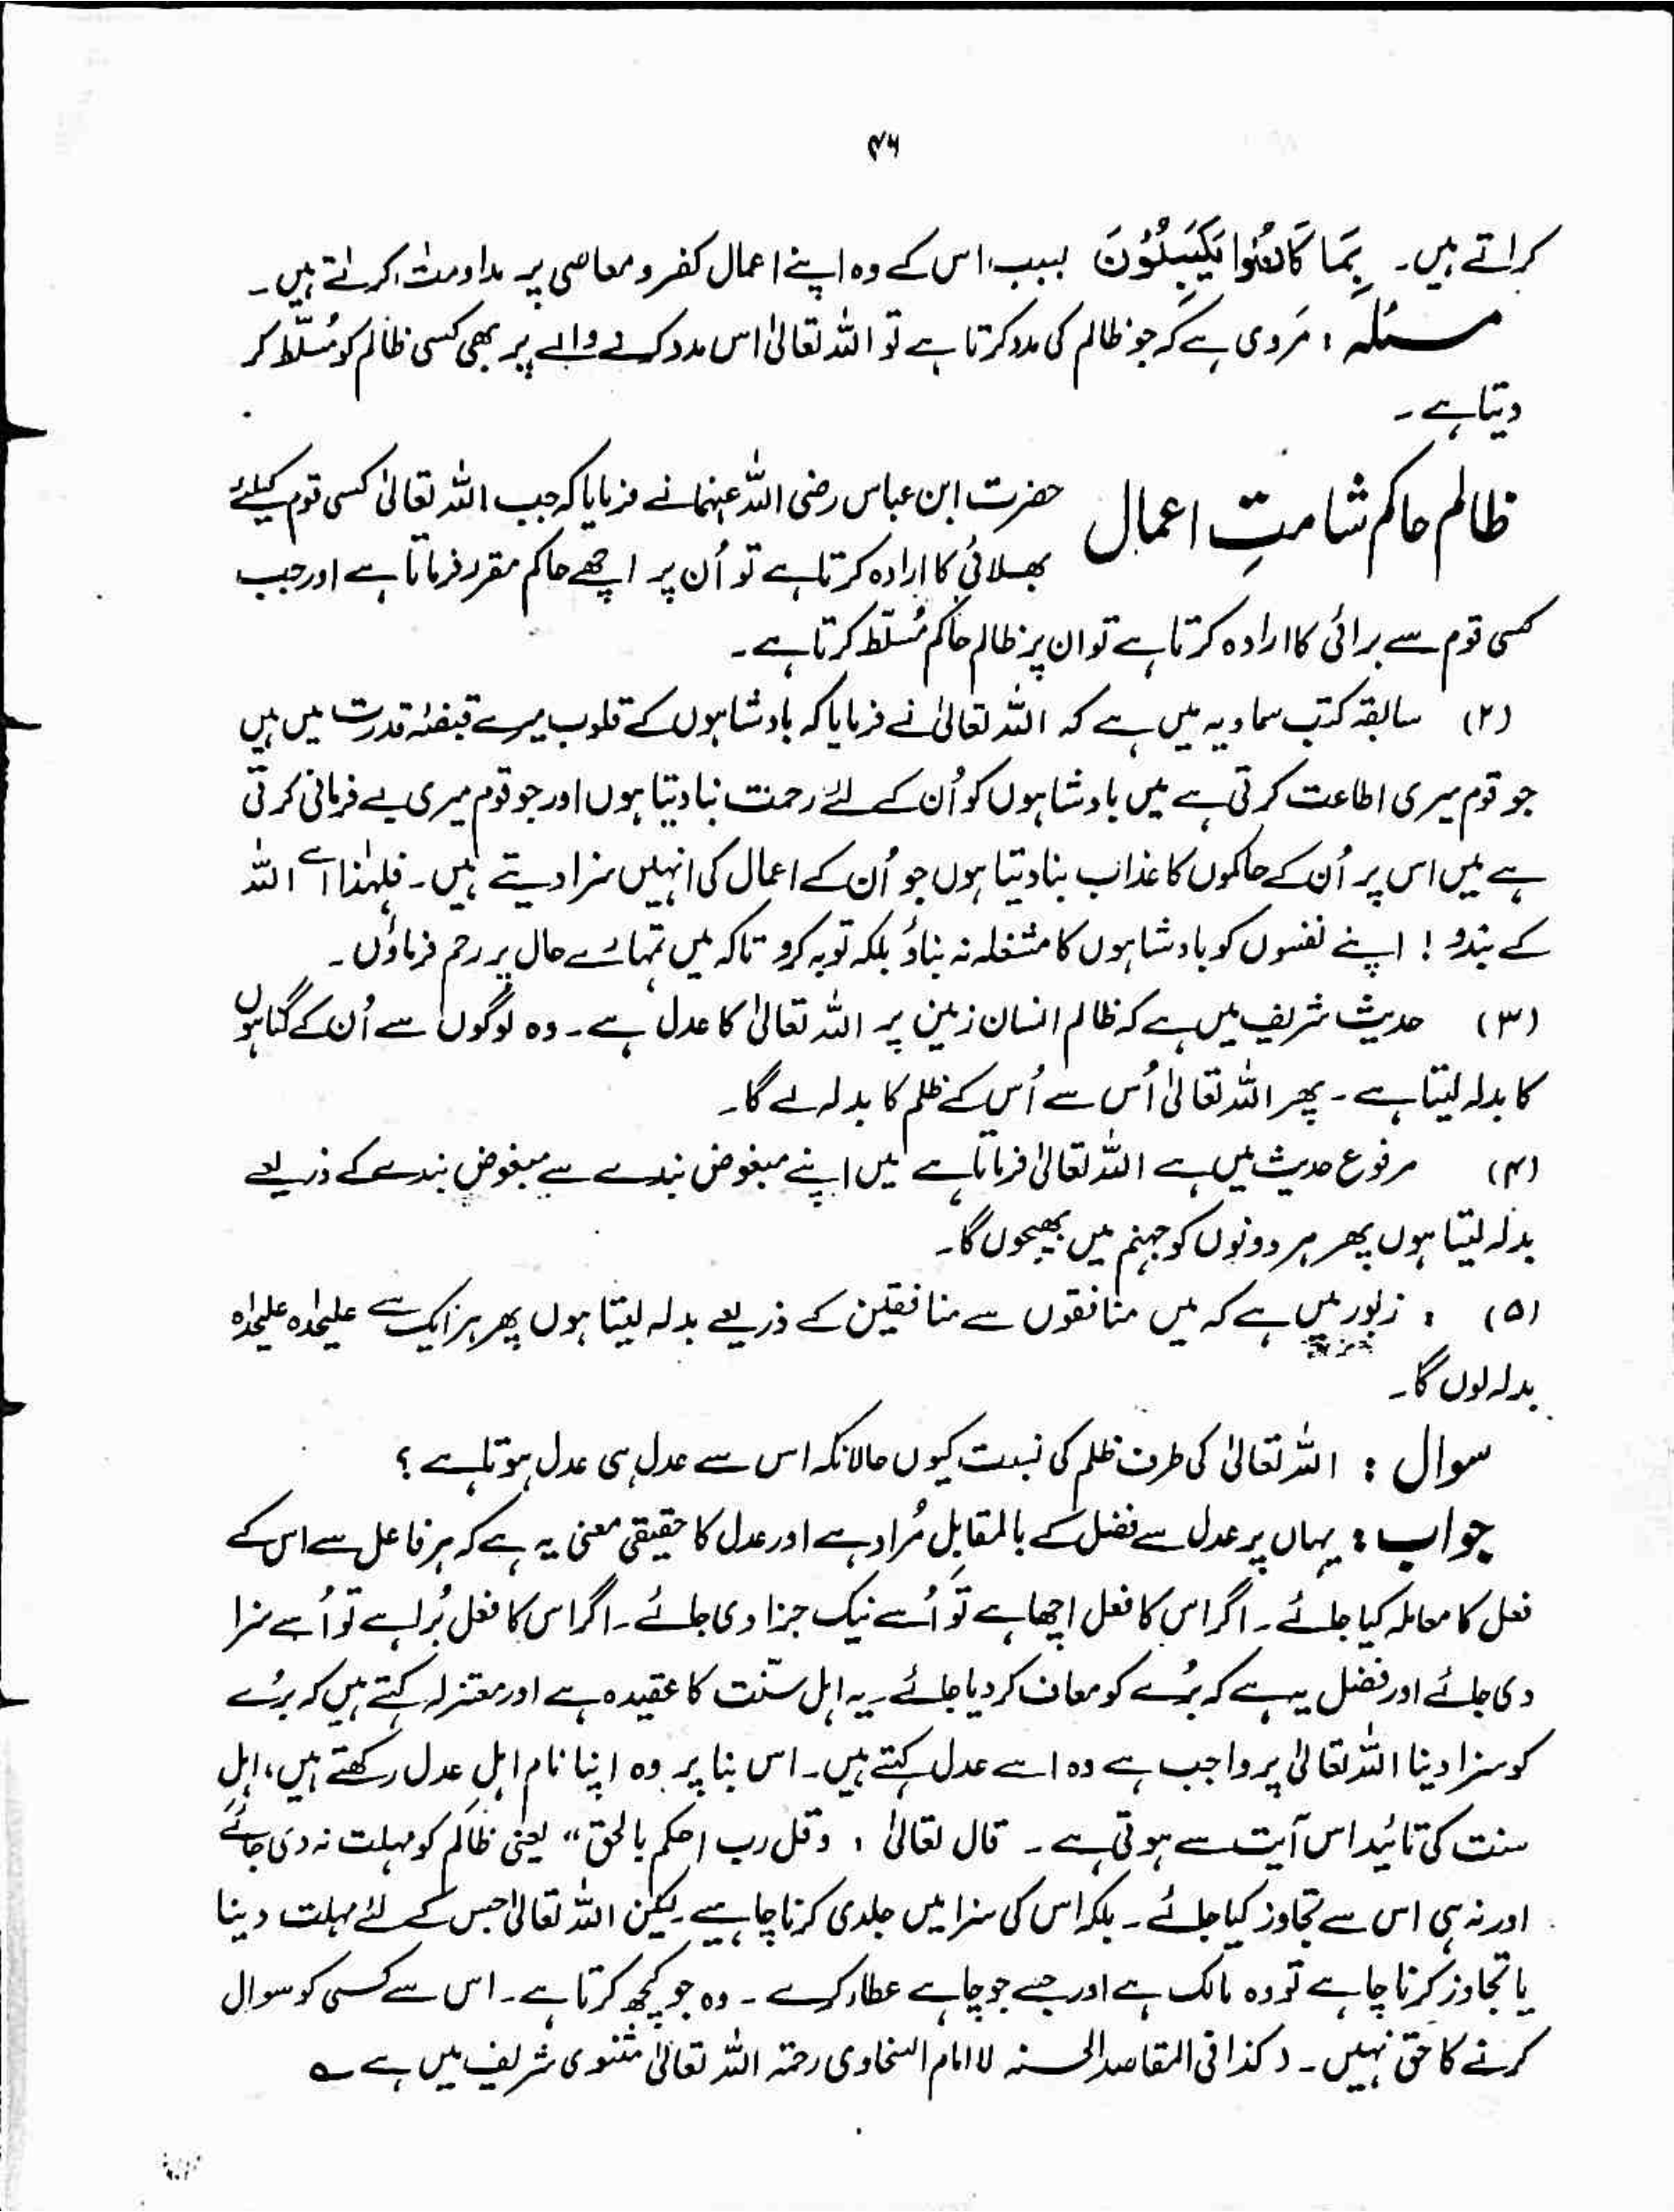 ۴۶
کراتے ہیں۔ بِمَا كَانُوْا يَكْسِبُوْنَ بسبب اس کے وہ اپنے اعمال کفر و معاصی پر مداومت کرتے ہیں۔
مسئلہ : مَروی ہے کہ جو ظالم کی مدد کرتا ہے تو اللہ تعالیٰ اس مدد کرنے والے پر بھی کسی ظالم کو مُسلّط کر
دیتا ہے۔
ظالم حاکم شامتِ اعمال
حضرت ابن عباس رضی اللہ عنہما نے فرمایا کہ جب اللہ تعالیٰ کسی قوم کیلئے
بھلائی کا ارادہ کرتا ہے تو اُن پر اچھے حاکم مقرر فرماتا ہے اور جب
کسی قوم سے برائی کا ارادہ کرتا ہے تو ان پر ظالم حاکم مُسلّط کرتا ہے۔
(۲) سابقہ کتب سماویہ میں ہے کہ اللہ تعالیٰ نے فرمایا کہ بادشاہوں کے قلوب میرے قبضۂ قدرت میں ہیں
جو قوم میری اطاعت کرتی ہے میں بادشاہوں کو اُن کے لئے رحمت بنا دیتا ہوں اور جو قوم میری بے فرمانی کرتی
ہے میں اس پر اُن کے حاکموں کا عذاب بنا دیتا ہوں جو اُن کے اعمال کی انہیں سزا دیتے ہیں۔ فلہٰذا اے اللہ
کے بندو ! اپنے نفسوں کو بادشاہوں کا مشغلہ نہ بناؤ بلکہ توبہ کرو تاکہ میں تمہارے حال پر رحم فرماؤں۔
(۳) حدیث شریف میں ہے کہ ظالم انسان زمین پر اللہ تعالیٰ کا عدل ہے۔ وہ لوگوں سے اُن کے گناہوں
کا بدلہ لیتا ہے۔ پھر اللہ تعالیٰ اُس سے اُس کے ظلم کا بدلہ لے گا۔
(۴) مرفوع حدیث میں ہے اللہ تعالیٰ فرماتا ہے میں اپنے مبغوض بندے سے مبغوض بندے کے ذریعے
بدلہ لیتا ہوں پھر ہر دونوں کو جہنم میں بھیجوں گا۔
(۵) ، زبور میں ہے کہ میں منافقوں سے منافقین کے ذریعے بدلہ لیتا ہوں پھر ہر ایک سے علیٰحدہ علیٰحدہ
بدلہ لوں گا۔
سوال : اللہ تعالیٰ کی طرف ظلم کی نسبت کیوں حالانکہ اس سے عدل ہی عدل ہوتا ہے ؟
جواب : یہاں پر عدل سے فضل کے بالمقابل مُراد ہے اور عدل کا حقیقی معنی یہ ہے کہ ہر فاعل سے اس کے
فعل کا معاملہ کیا جائے۔ اگر اس کا فعل اچھا ہے تو اُسے نیک جزا دی جائے۔ اگر اس کا فعل بُرا ہے تو اُسے سزا
دی جائے اور فضل یہ ہے کہ بُرے کو معاف کر دیا جائے۔ یہ اہل سنّت کا عقیدہ ہے اور معتزلہ کہتے ہیں کہ بُرے
کو سزا دینا اللہ تعالیٰ پر واجب ہے وہ اسے عدل کہتے ہیں۔ اس بنا پر وہ اپنا نام اہلِ عدل رکھتے ہیں، اہلِ
سنت کی تائید اس آیت سے ہوتی ہے۔ قال تعالیٰ ، وقل رب احکم بالحق" یعنی ظالم کو مہلت نہ دی جائے
اور نہ ہی اس سے تجاوز کیا جائے۔ بلکہ اس کی سزا میں جلدی کرنا چاہیے۔ لیکن اللہ تعالیٰ جس کے لئے مہلت دینا
یا تجاوز کرنا چاہے تو وہ مالک ہے اور جسے جو چاہے عطا کرے۔ وہ جو کچھ کرتا ہے۔ اس سے کسی کو سوال
کرنے کا حق نہیں۔ د کذا فی المقاصد الحسنہ لا امام السخاوی رحمۃ اللہ تعالیٰ مثنوی شریف میں ہے ؎